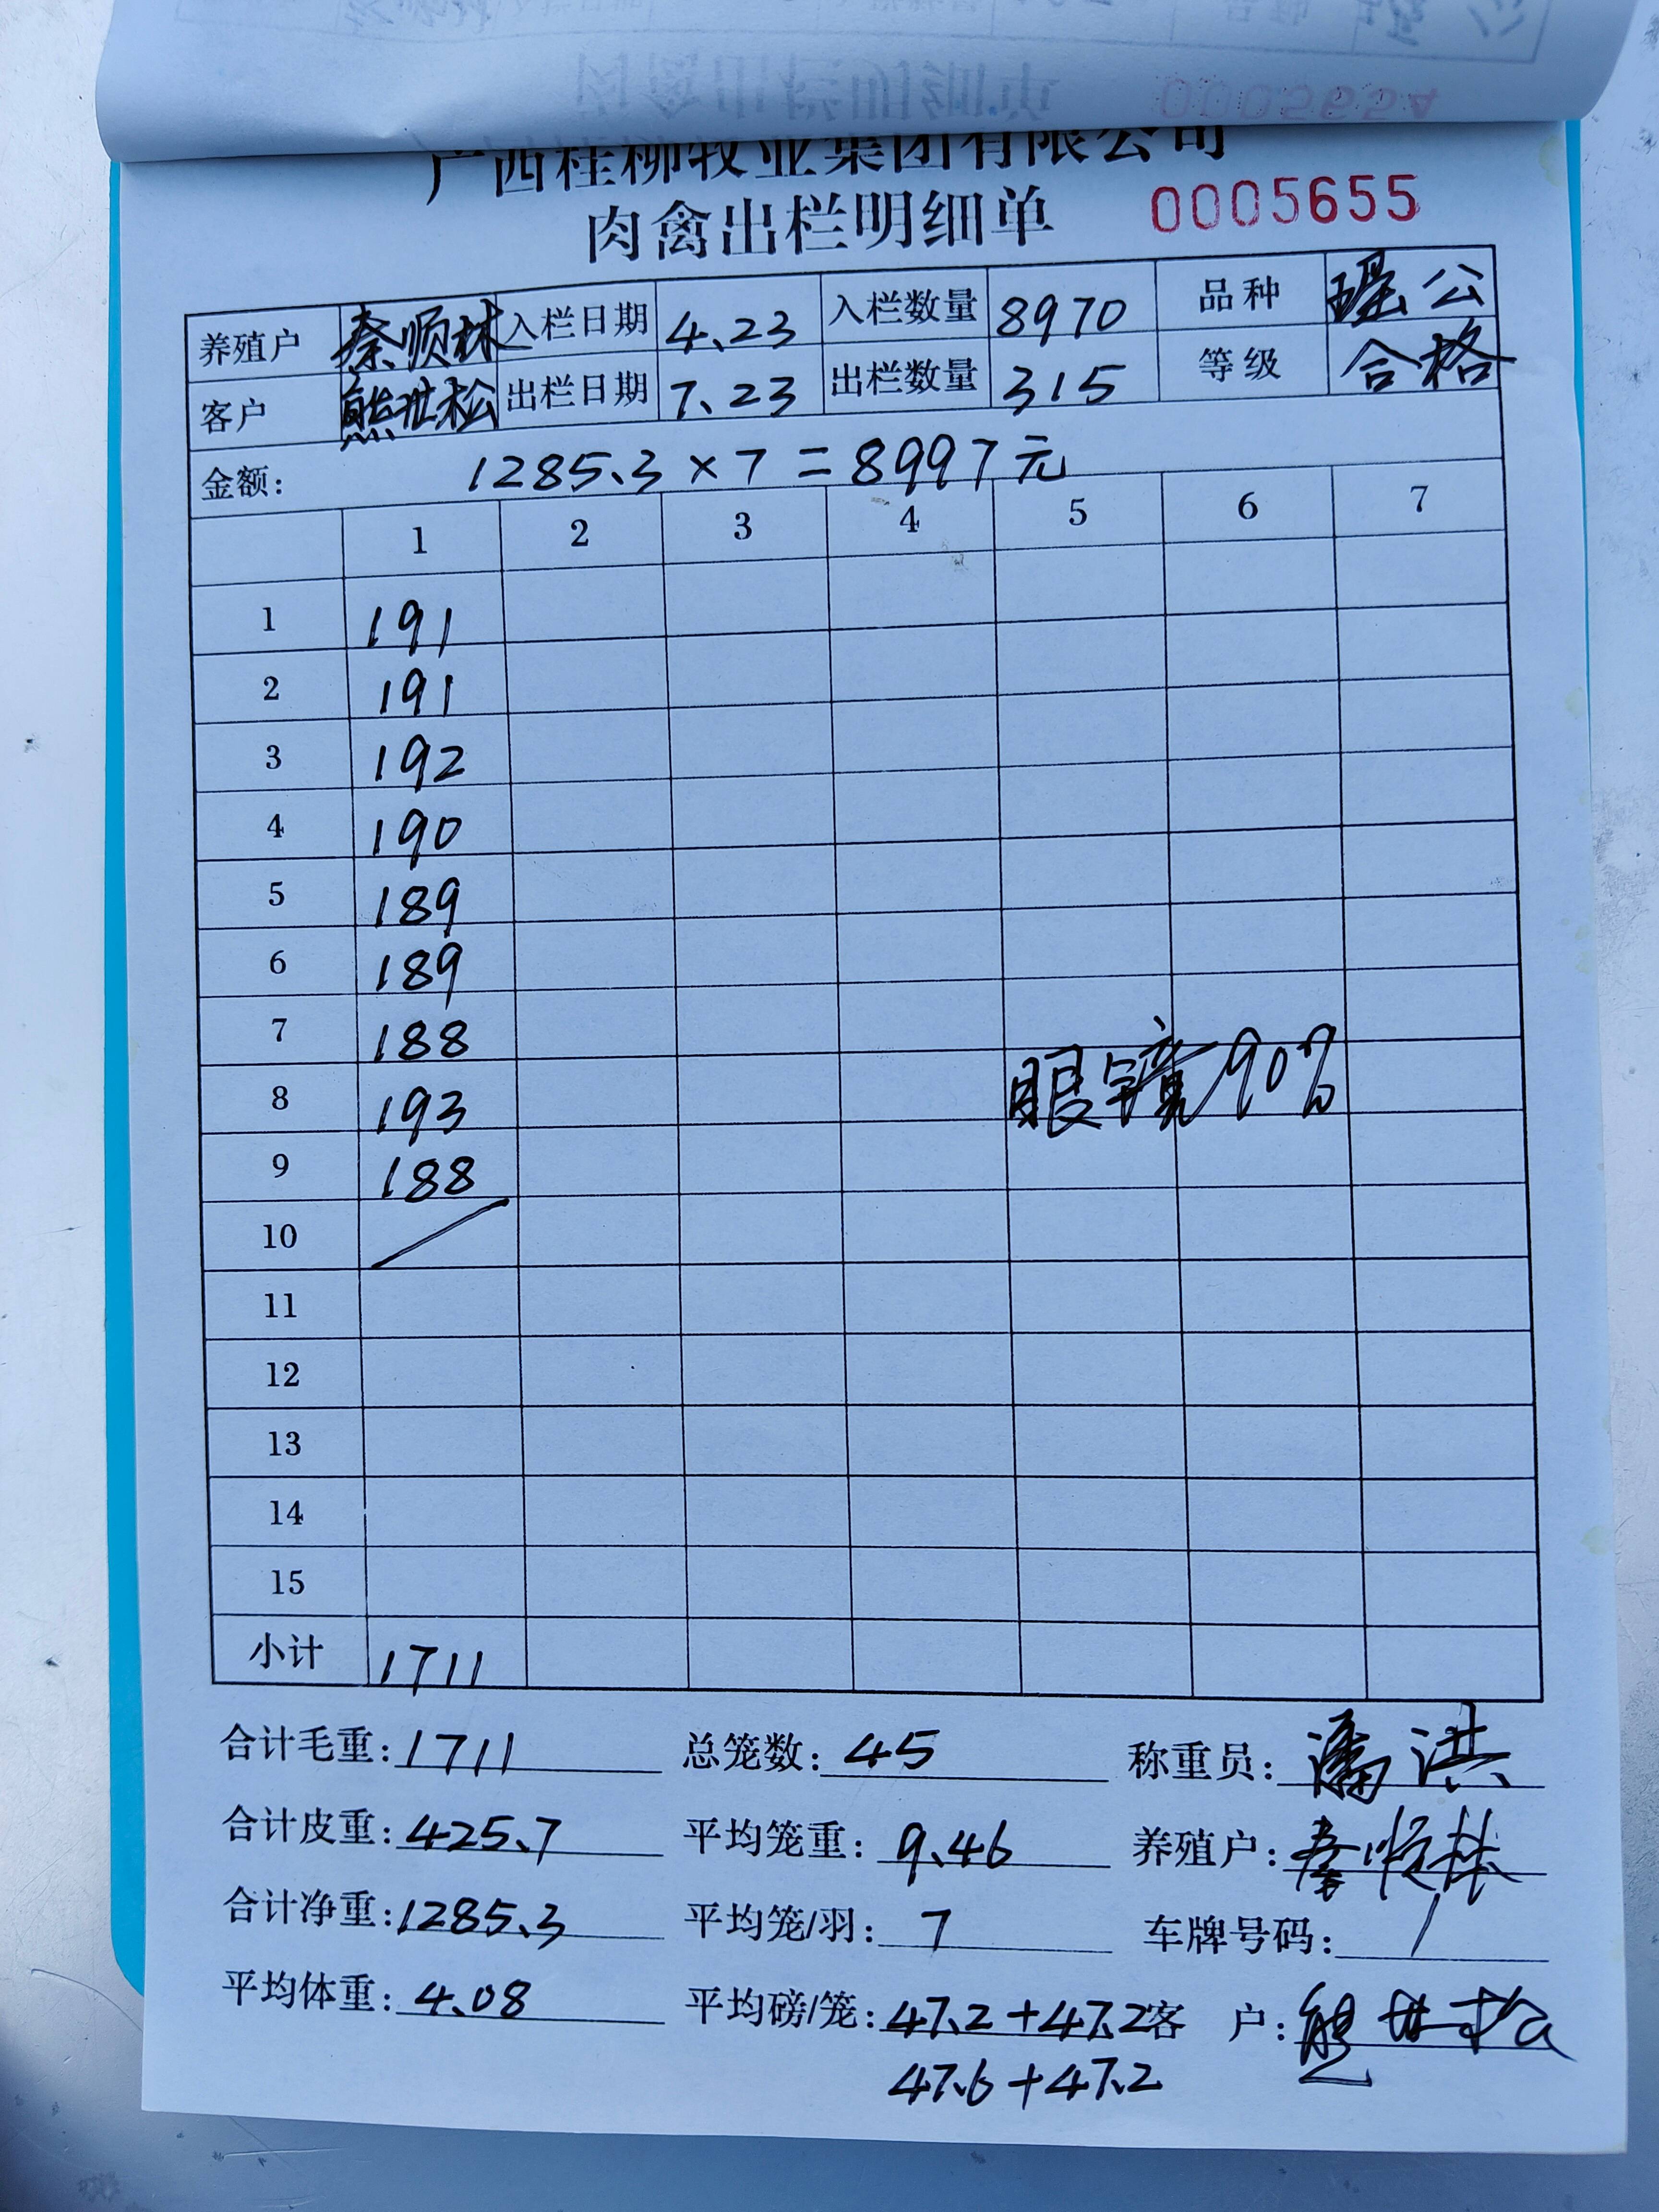 广西桂柳牧业集团有限公司
肉禽出栏明细单 0005655
养殖户 秦顺林 入栏日期 4.23 入栏数量 8970 品种 瑶公
客户 熊世松 出栏日期 7.23 出栏数量 315 等级 合格
金额: 1285.3×7=8997元
1 2 3 4 5 6 7
1 191
2 191
3 192
4 190
5 189
6 189
7 188
8 193 眼镜90%
9 188
10 /
11
12
13
14
15
小计 1711
合计毛重: 1711 总笼数: 45 称重员: 潘洪
合计皮重: 425.7 平均笼重: 9.46 养殖户: 秦顺林
合计净重: 1285.3 平均笼/羽: 7 车牌号码: /
平均体重: 4.08 平均磅/笼: 47.2+47.2 客 户: 熊世松
47.6+47.2